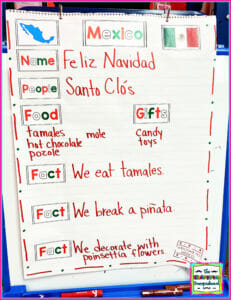 Mexico
Name Feliz Navidad
People Santo Clós
Food Gifts
tamales mole Candy
hot chocolate toys
pozole
Fact We eat tamales.
Fact We break a piñata.
Fact We decorate with
poinsettia flowers.
the